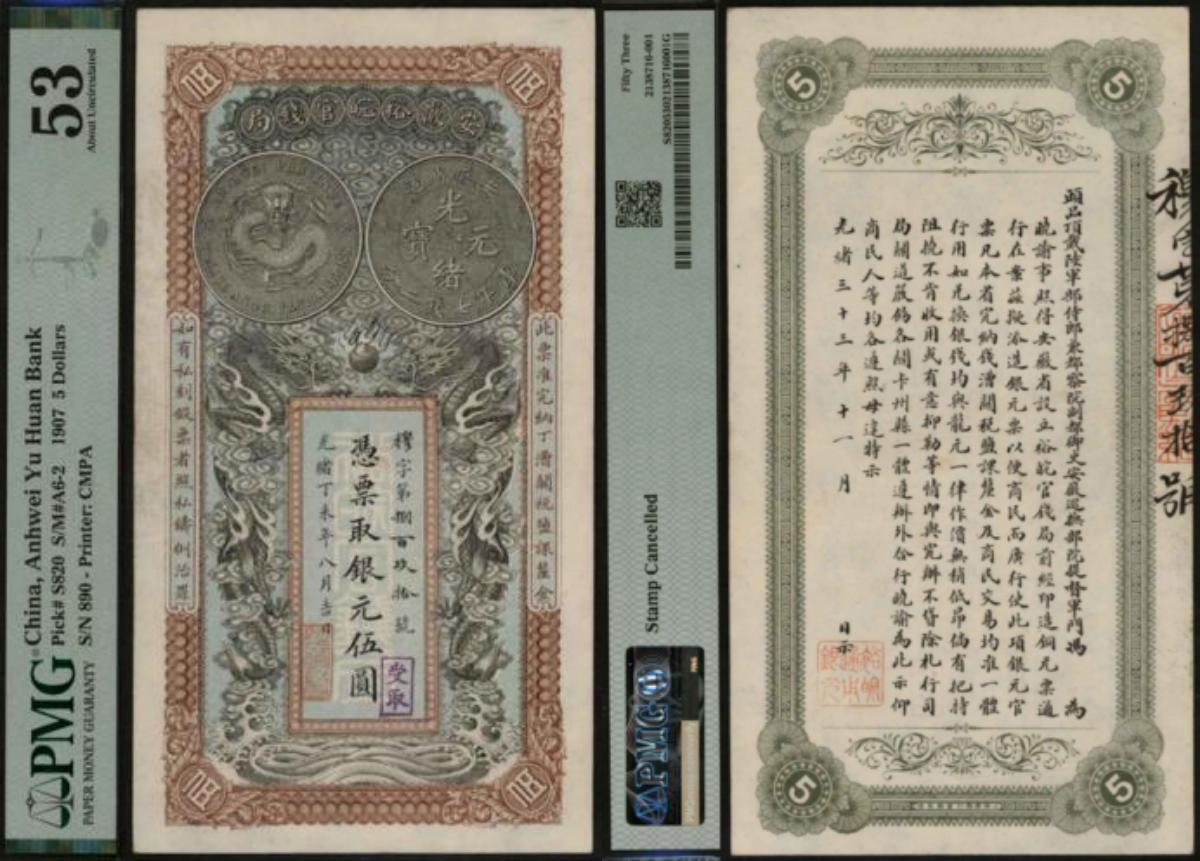 PMG
PAPER MONEY GUARANTY
China, Anhwei Yu Huan Bank
Pick# S820 S/M#A6-2 1907 5 Dollars
S/N 890 - Printer: CMPA
53
About Uncirculated
伍 伍
安徽裕皖官錢局
光緒元寶
此票准完納丁漕關稅鹽課釐金
如有私刻假票者照私鑄例治罪
穆字第捌百玖拾號
憑票取銀元伍圓
光緒丁未年八月吉日
受取
伍 伍
Fifty Three
2138716-001
S8205302138716001G
Stamp Cancelled
PMG
5 5
頭品頂戴陸軍部侍郎兼都察院副都御史安徽巡撫部院提督軍門馮 為
曉諭事照得安徽省設立裕皖官錢局前經印造銅元票通
行在案茲擬添造銀元票以便商民而廣行使此項銀元官
票凡本省完納錢漕關稅鹽課釐金及商民交易均准一體
行用如兌換銀錢均與龍元一律作價無稍低昂倘有把持
阻撓不肯收用或有意抑勒等情即與究辦不貸除札行司
局關道嚴飭各關卡州縣一體遵辦外合行曉諭為此示仰
商民人等均各遵照毋違特示
光緒三十三年十一月 日示
5 5